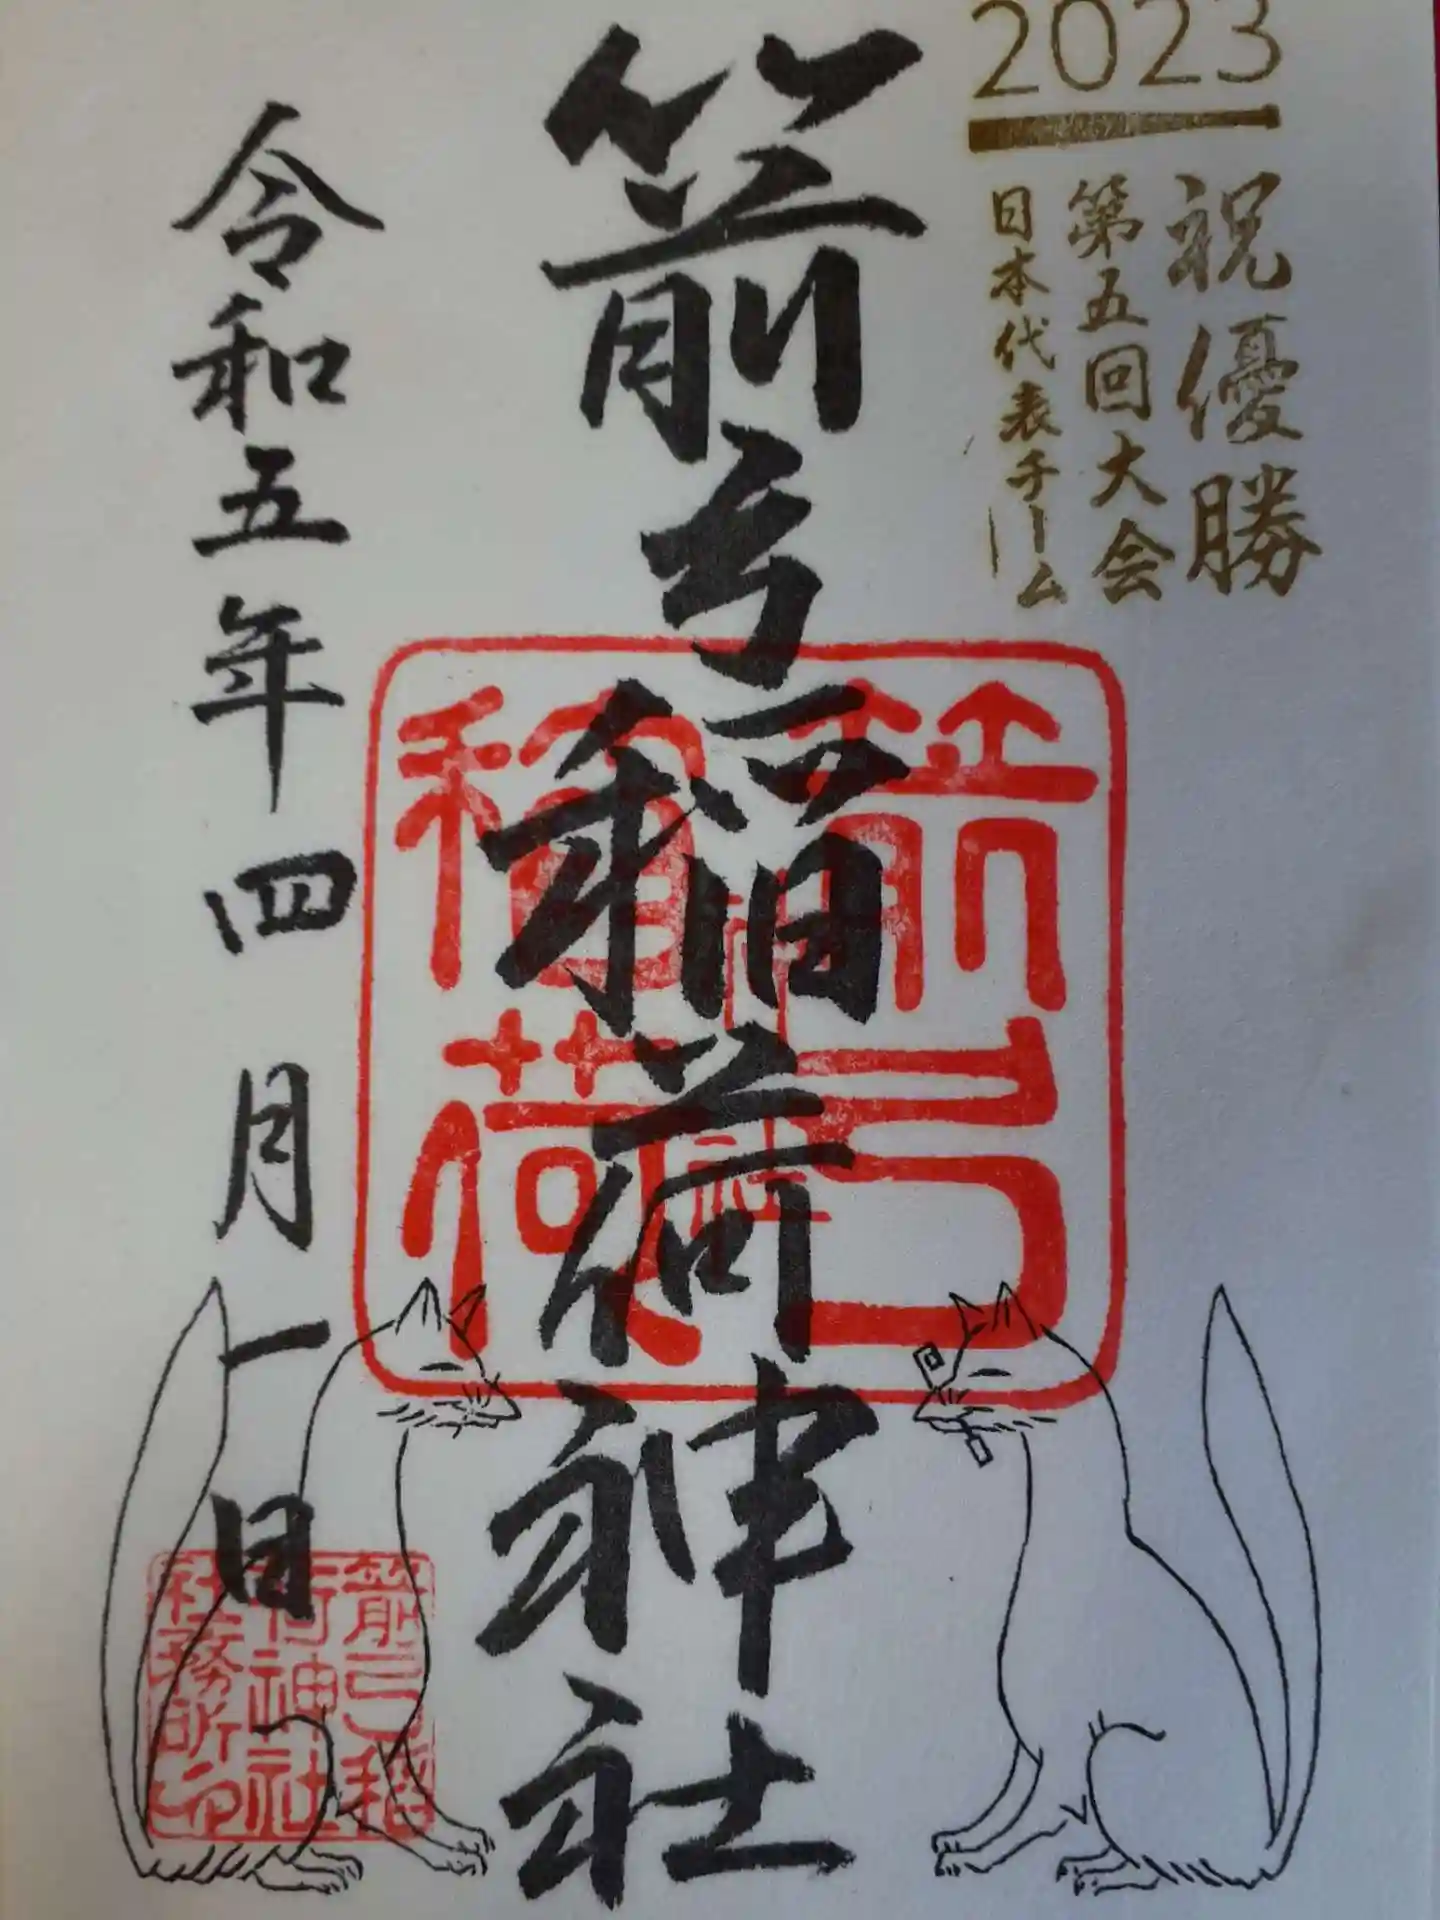 2023
祝優勝
第五回大会
日本代表チーム
箭弓稲荷神社
令和五年四月一日
箭弓
稲荷
神社
箭弓稲
荷神社
社務所印